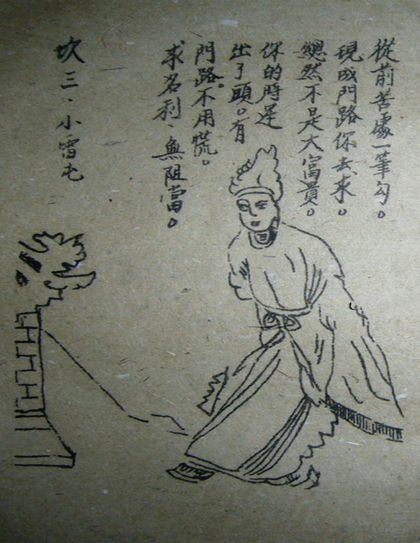 從前苦處一筆勾。
現成門路你去求。
總然不是大富貴。
你的時運
出了頭。有
門路。不用慌。
求名利、無阻當。
坎三·小雪屯